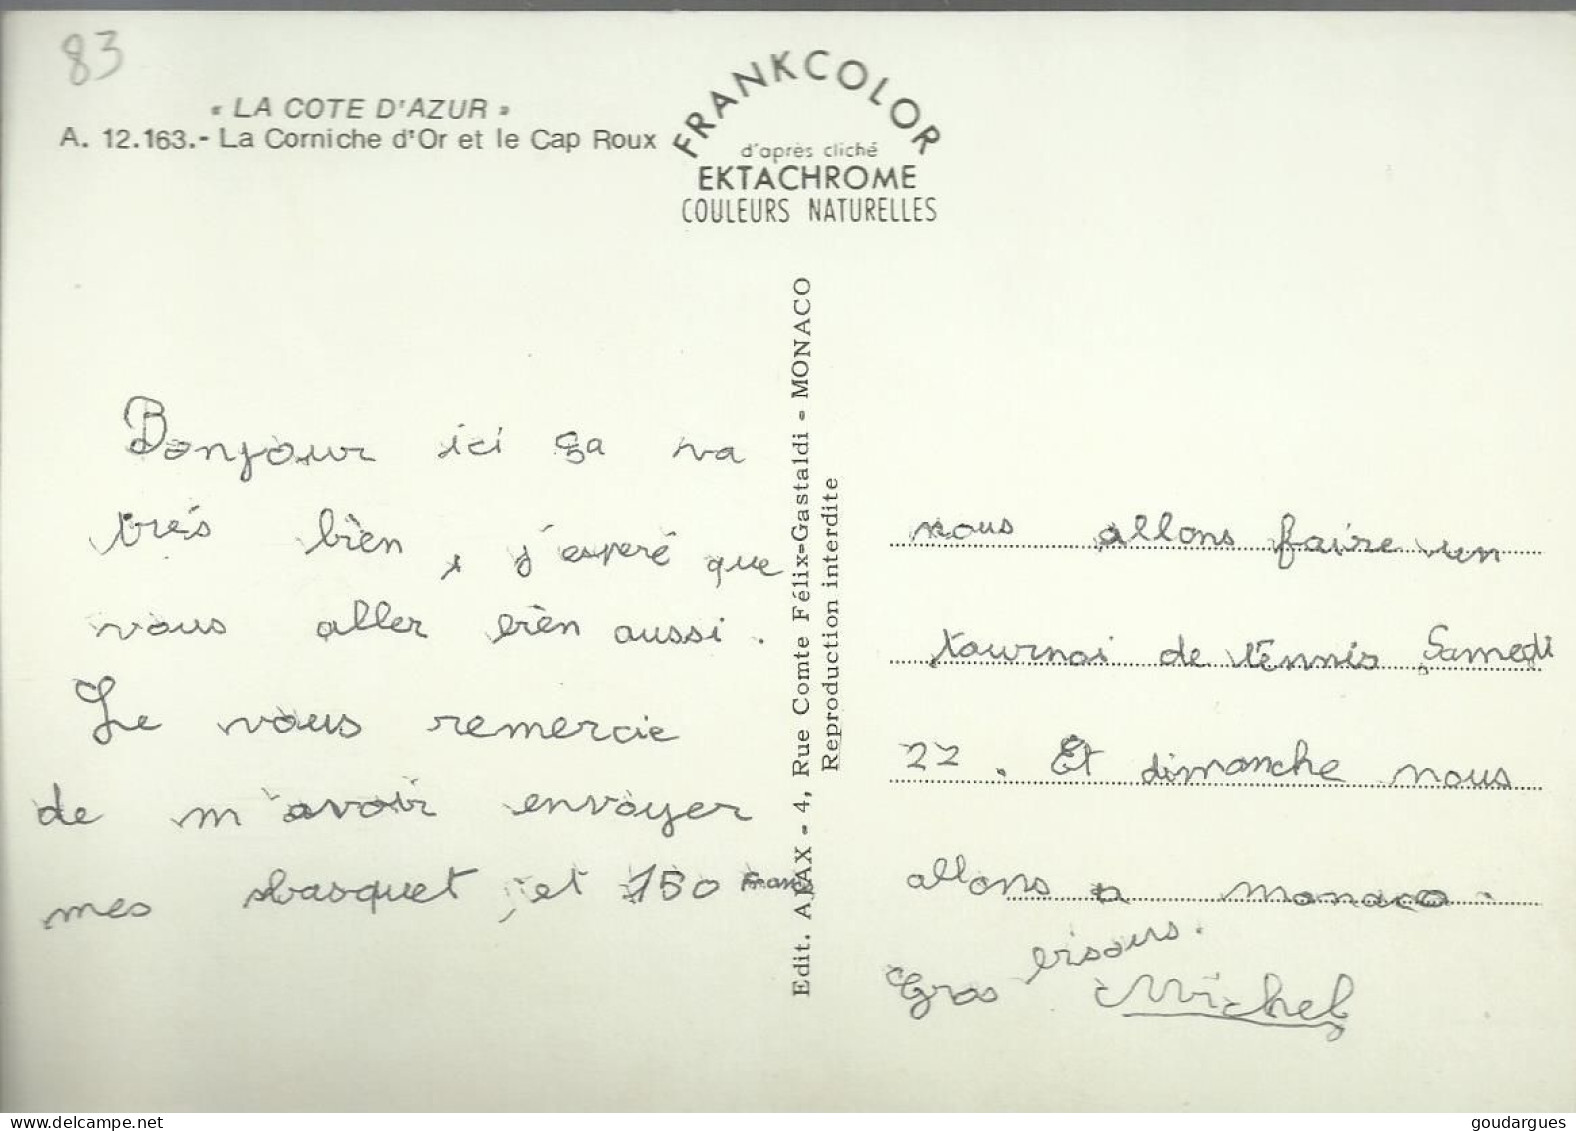 83
« LA COTE D'AZUR »
A. 12.163.- La Corniche d'Or et le Cap Roux
FRANKCOLOR
d'après cliché
EKTACHROME
COULEURS NATURELLES
Bonjour ici ça va
trés bien, j'esperé que
vous aller bien aussi.
Je vous remercie
de m'avoir envoyer
mes basquet, et 150 francs
Edit. AJAX - 4, Rue Comte Félix-Gastaldi - MONACO
Reproduction interdite
nous allons faire un
tournoi de tennis Samedi
22. Et dimanche nous
allons a monaco.
Gros bisous.
Michel
delcampe.net
goudargues